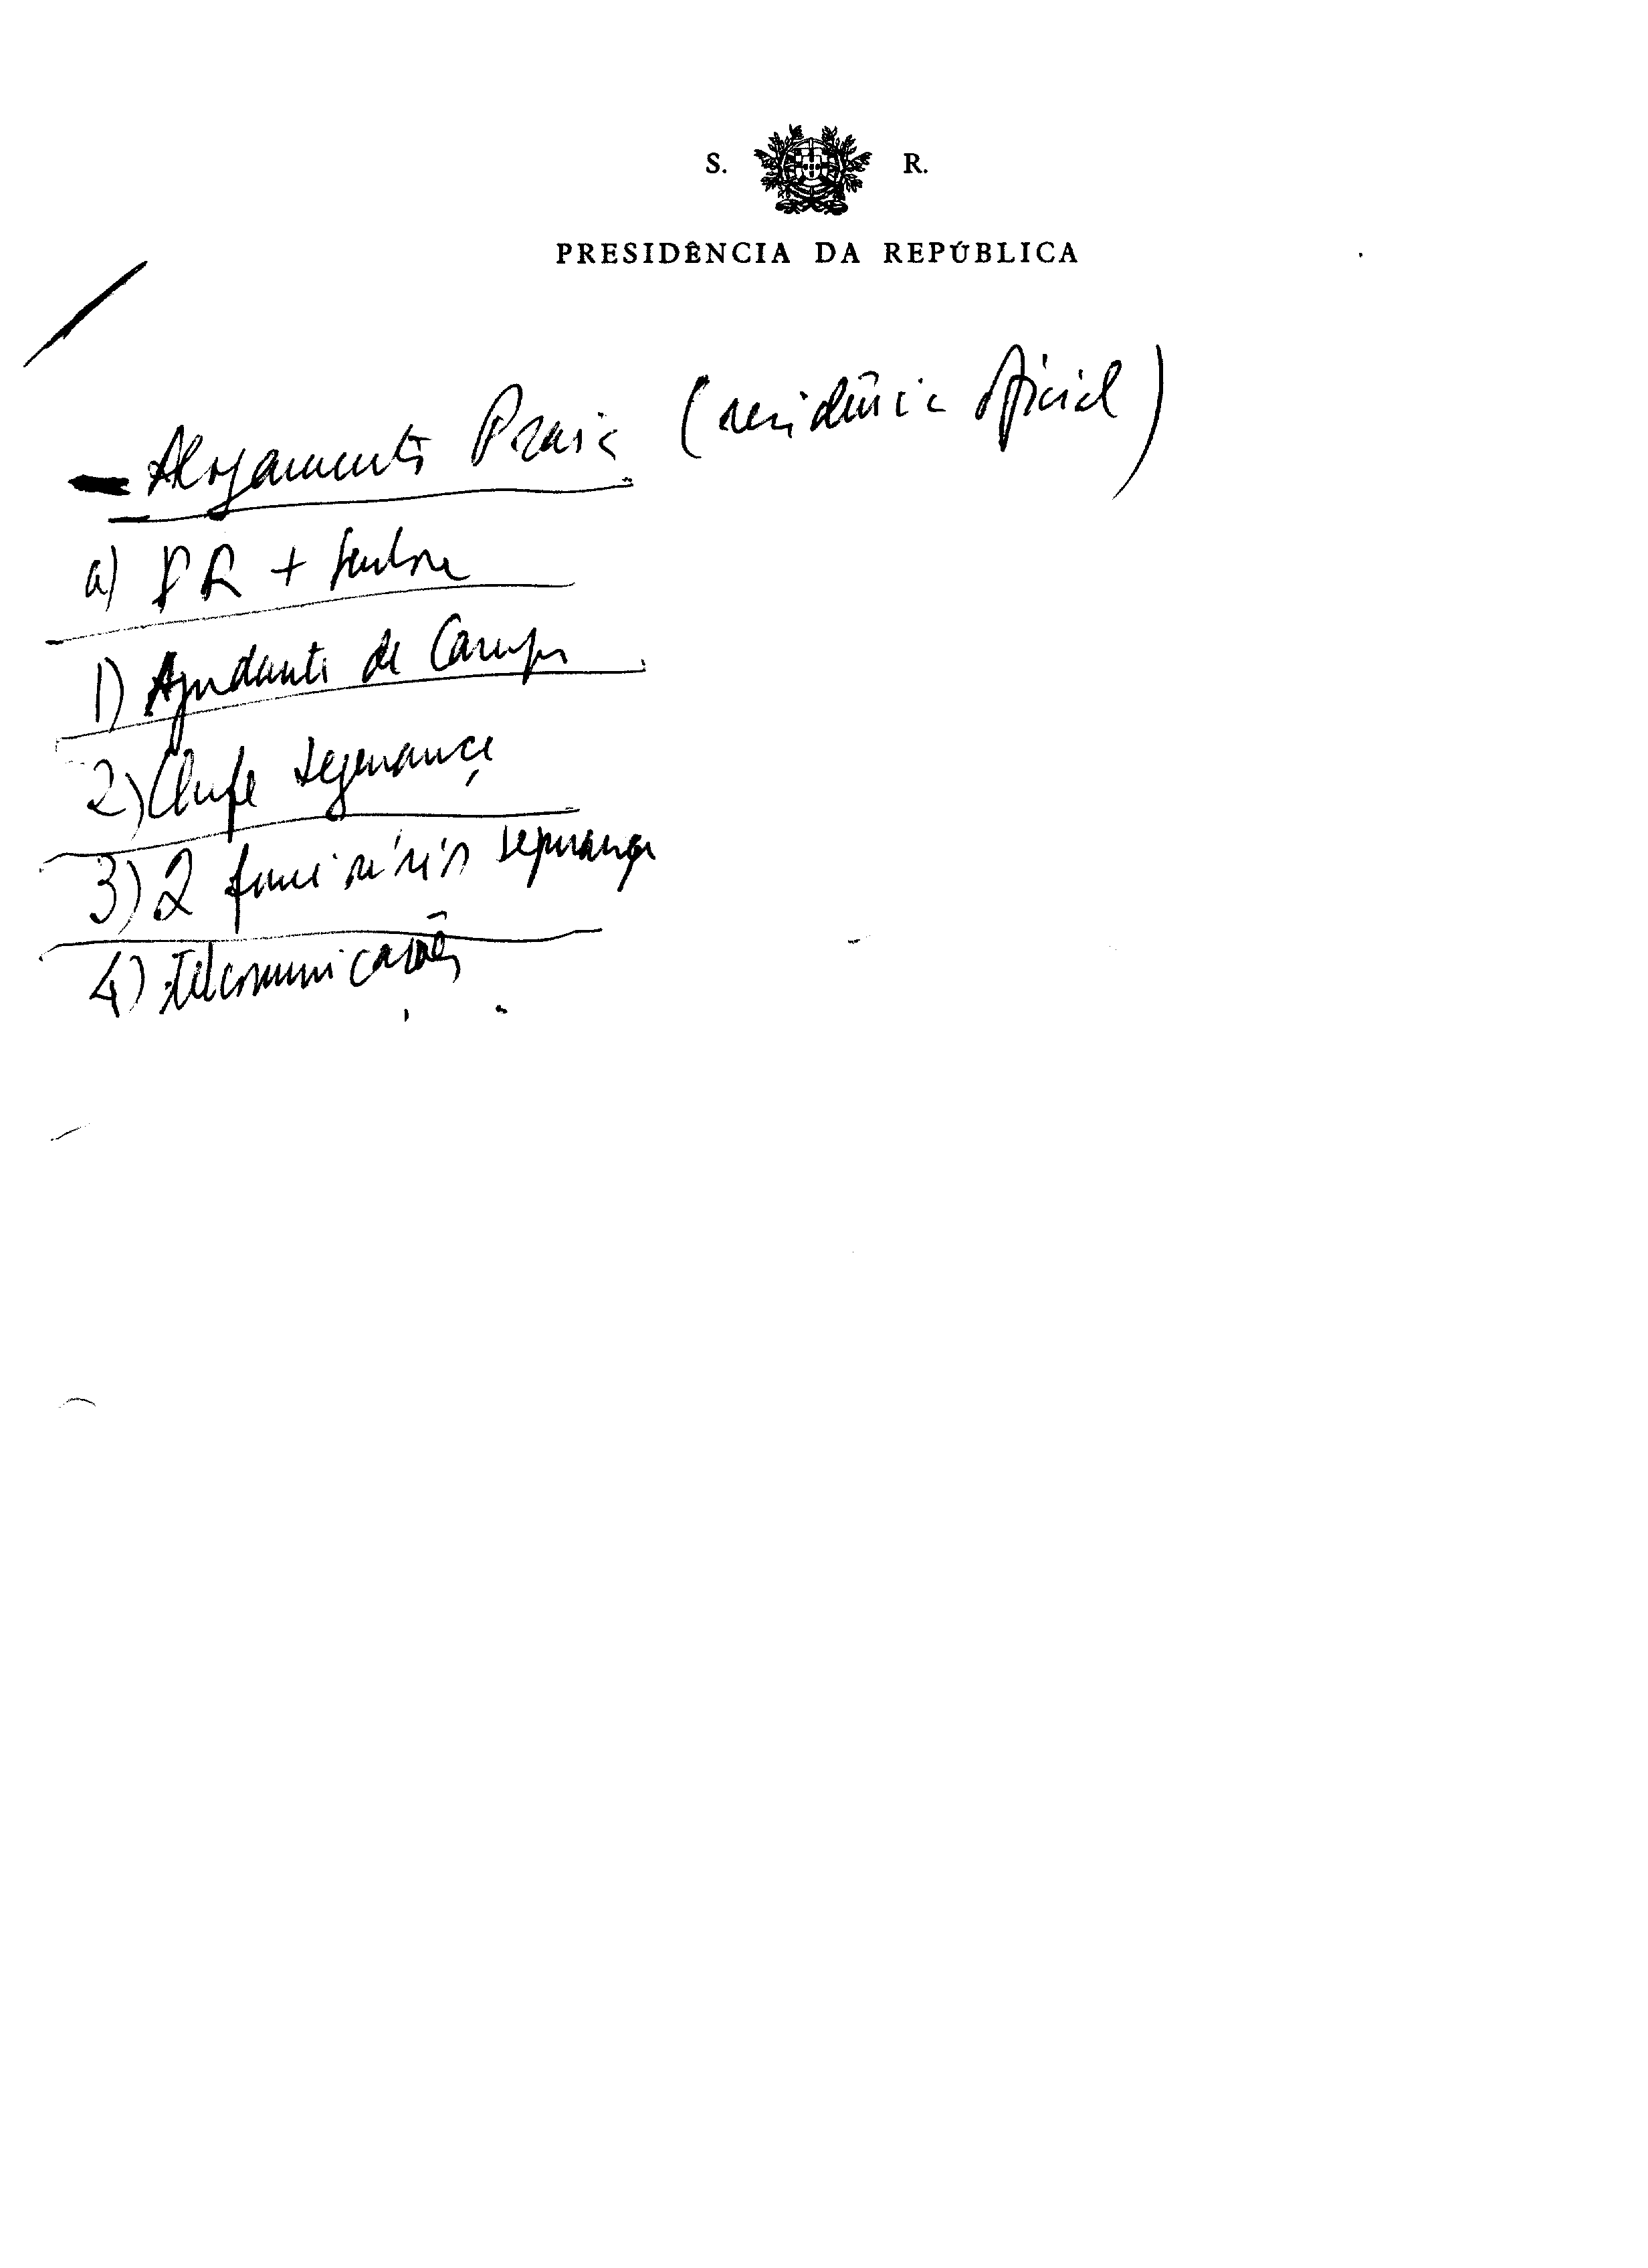 S. R.
PRESIDÊNCIA DA REPÚBLICA
- Alojamento Praia (residência oficial)
a) PR + Senhora
1) Ajudante de Campo
2) Chefe segurança
3) 2 funcionários segurança
4) Telecomunicações